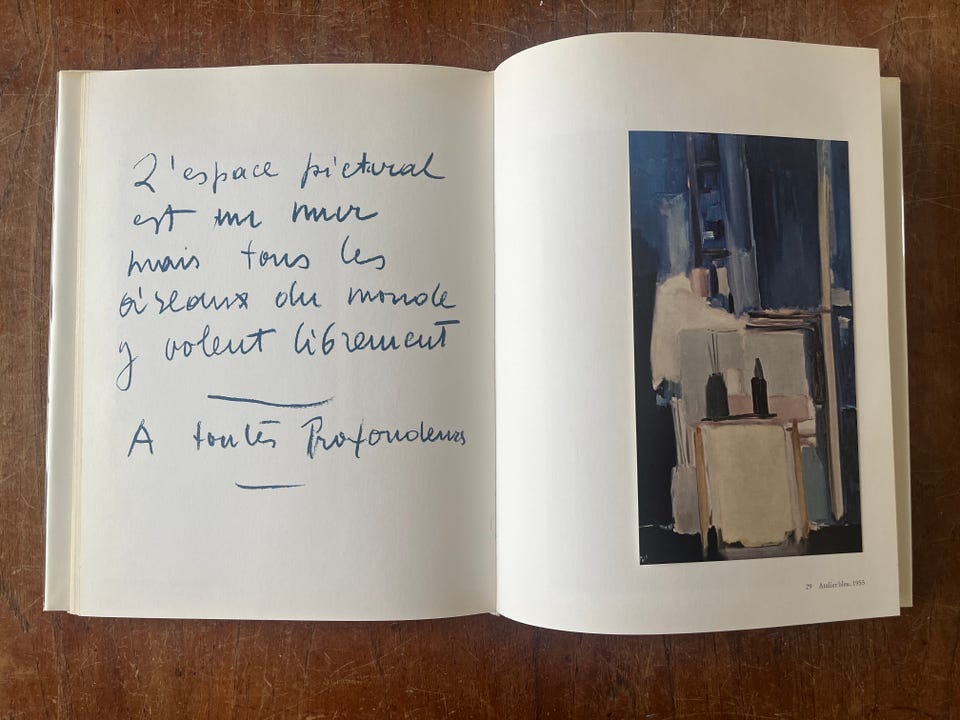 L'espace pictural
est un mur
mais tous les
oiseaux du monde
y volent librement
A toutes Profondeurs
29 Atelier bleu, 1955